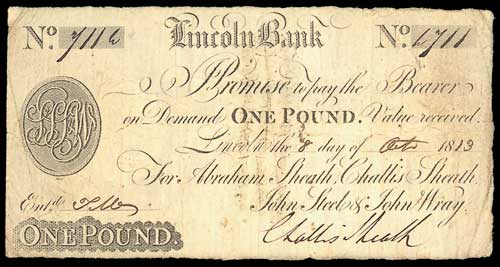 No. Lincoln Bank No.
I Promise to pay the Bearer
on Demand ONE POUND. Value received.
Lincoln the 8 day of Octr 1813
For Abraham Sheath, Challis Sheath,
John Steel & John Wray.
Entd.
Challis Sheath
ONE POUND